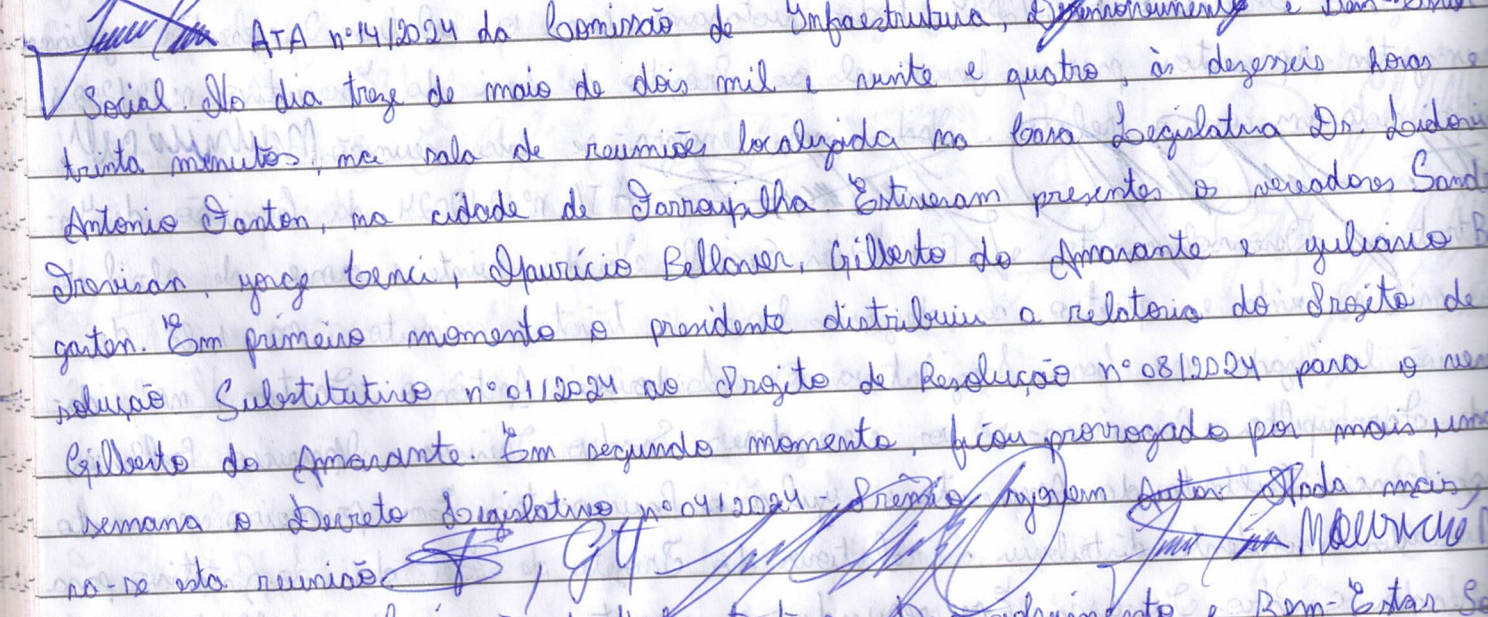 ATA nº 14/2024 da Comissão de Infraestrutura, Desenvolvimento e Bem-Estar
Social No dia treze de maio de dois mil e vinte e quatro, às dezesseis horas e
trinta minutos, na sala de reuniões localizada na Casa Legislativa Dr. Lidovi
Antonio Fanton, na cidade de Farroupilha. Estiveram presentes os vereadores Sand
Trevisan, Jorge Cenci, Maurício Bellaver, Gilberto do Amarante e Juliano B
garten. Em primeiro momento o presidente distribuiu a relatoria do Projeto de
solução Substitutivo nº 01/2024 ao Projeto de Resolução nº 08/2024 para o ve
Gilberto do Amarante. Em segundo momento, ficou prorrogado por mais uma
semana o Decreto Legislativo nº 04/2024 - Prêmio Jovem Autor Nada mais,
ra-se esta reunião. Mauricio
e Bem-Estar So